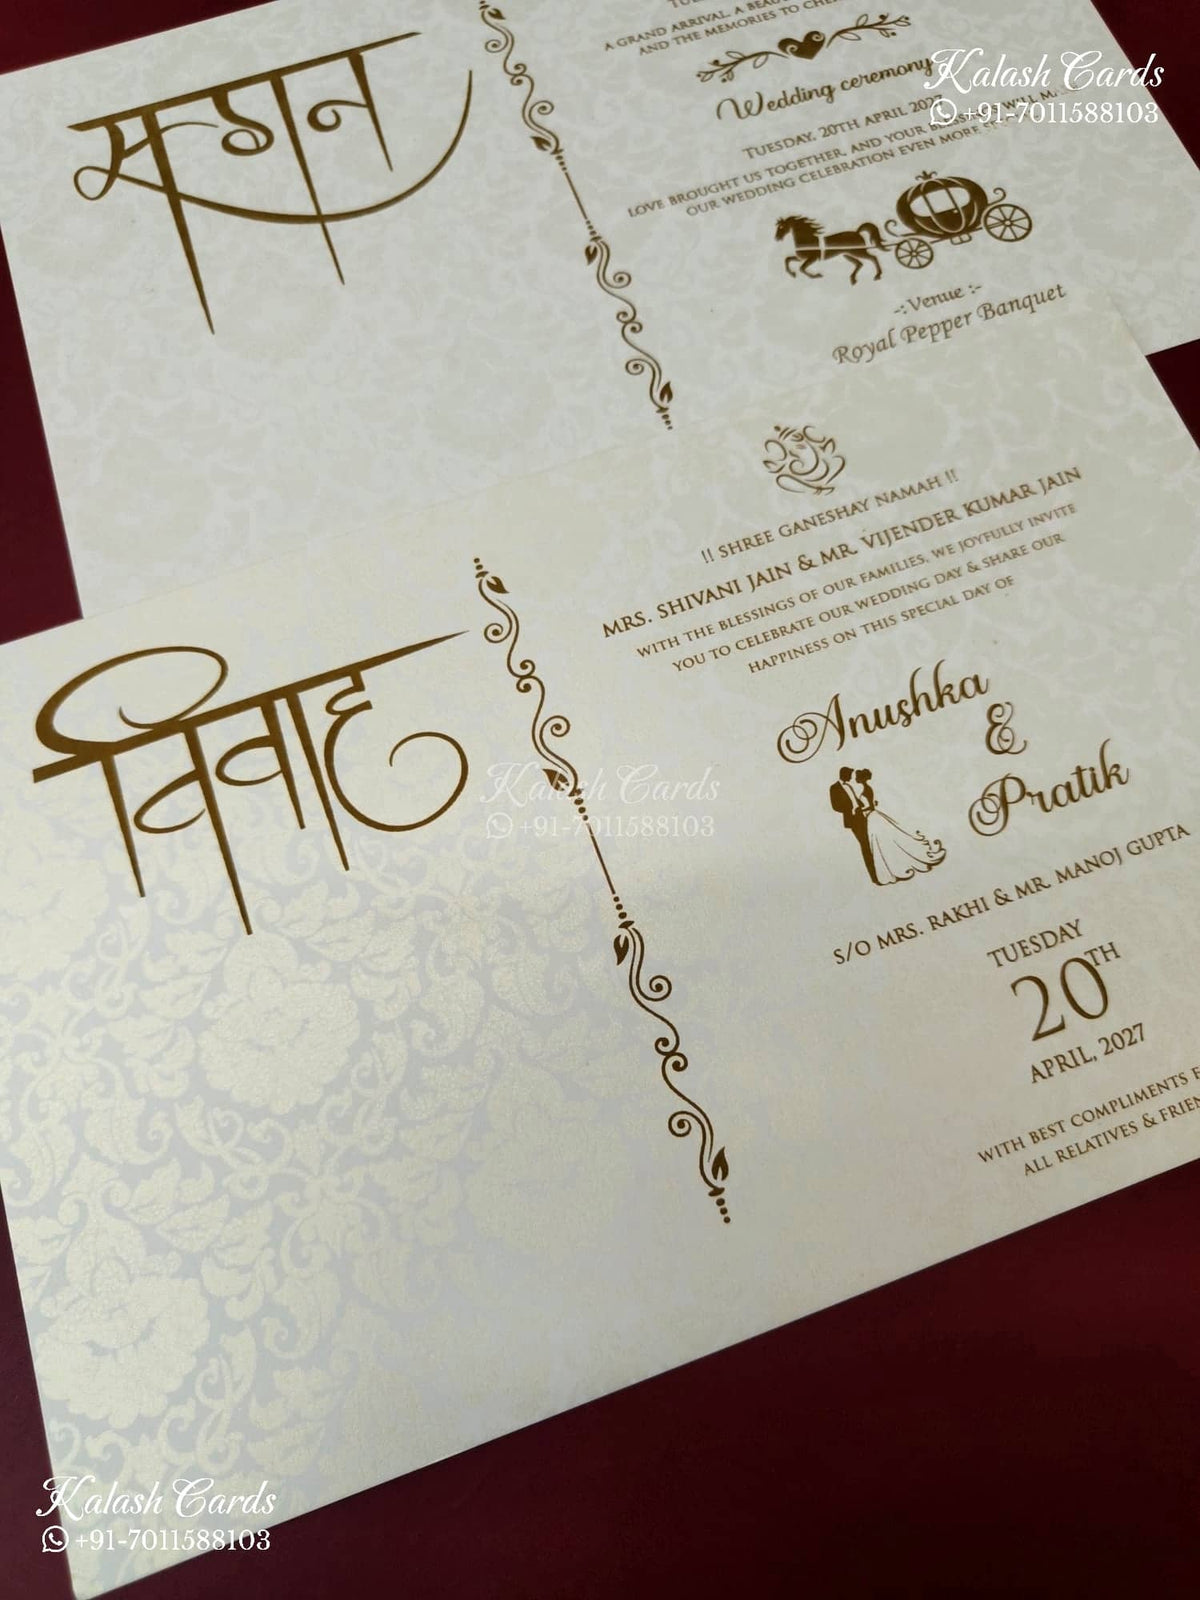 सगन
A GRAND ARRIVAL, A
AND THE MEMORIES TO
Wedding ceremony
TUESDAY, 20TH APRIL 2027
LOVE BROUGHT US TOGETHER, AND YOUR WILL
OUR WEDDING CELEBRATION EVEN MORE
-:Venue :-
Royal Pepper Banquet
Kalash Cards
+91-7011588103
विवाह
!! SHREE GANESHAY NAMAH !!
MRS. SHIVANI JAIN & MR. VIJENDER KUMAR JAIN
WITH THE BLESSINGS OF OUR FAMILIES, WE JOYFULLY INVITE
YOU TO CELEBRATE OUR WEDDING DAY & SHARE OUR
HAPPINESS ON THIS SPECIAL DAY OF
Anushka
&
Pratik
S/O MRS. RAKHI & MR. MANOJ GUPTA
TUESDAY
20TH
APRIL, 2027
WITH BEST COMPLIMENTS
ALL RELATIVES &
Kalash Cards
+91-7011588103
Kalash Cards
+91-7011588103